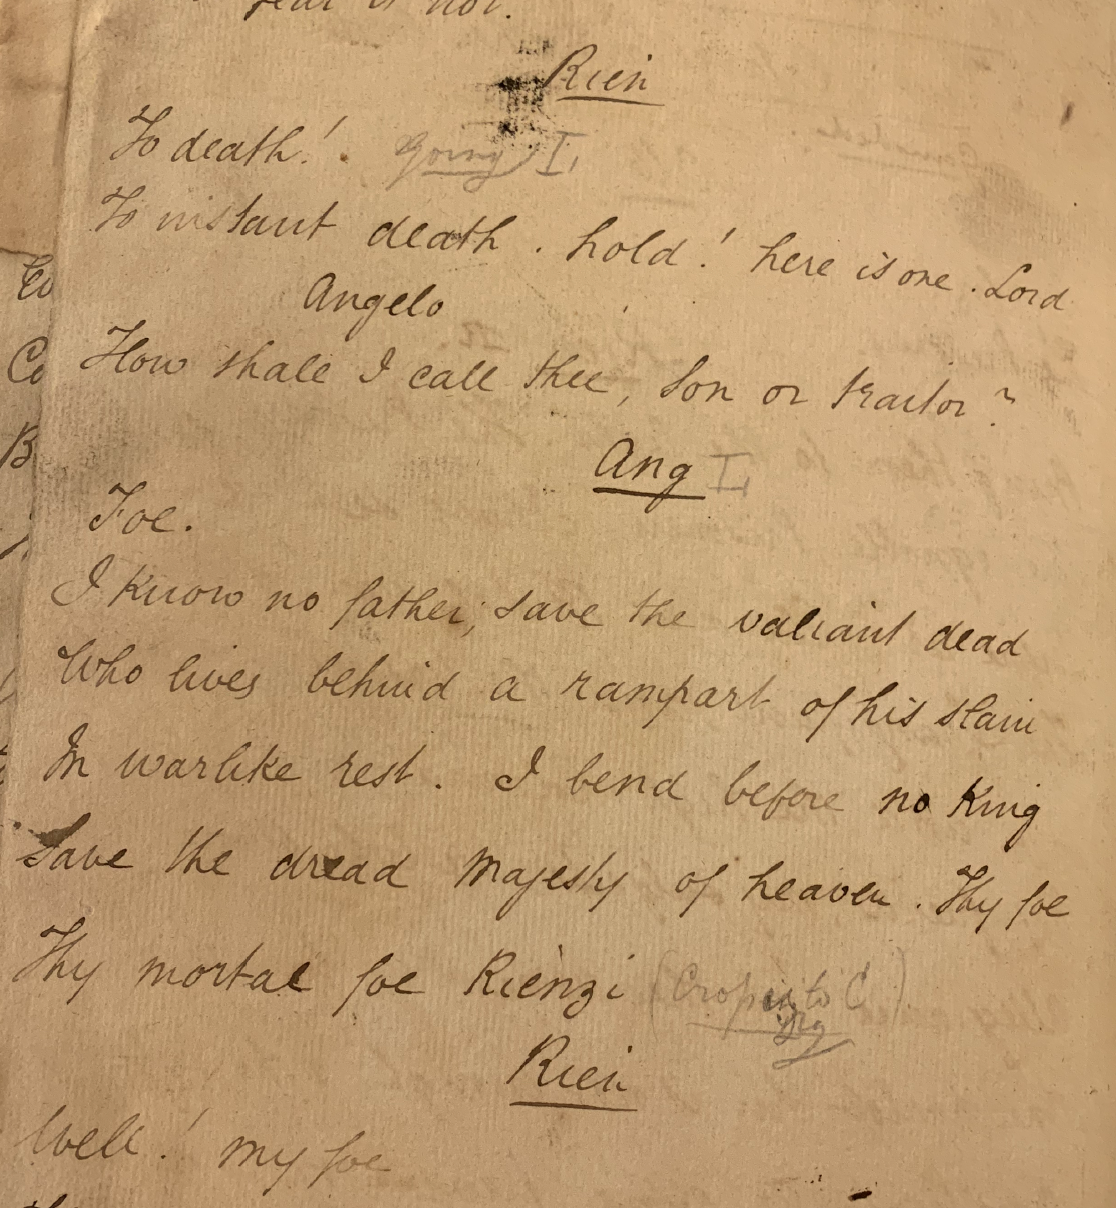 fear is not.
Rien
To death! going L
To instant death. hold! here is one. Lord
Angelo
How shall I call thee, Son or traitor?
Ang L
Foe.
I know no father, save the valiant dead
Who lives behind a rampart of his slain
In warlike rest. I bend before no King
Save the dread Majesty of heaven. Thy foe
Thy mortal foe Rienzi
Rien
Well! my foe